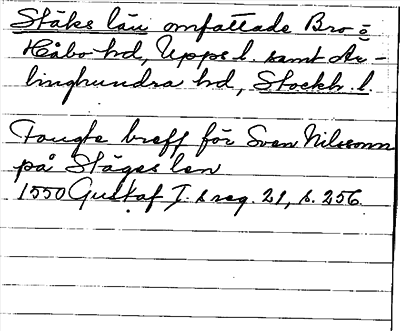 Stäks län omfattade Bro o
Håbo hd, Upps l. samt Ar-
linghundra hd, Stockh. l.
Fougte breff för Sven Nilsson
på Stäges len
1550 Gustaf I. s reg. 21, s. 256.